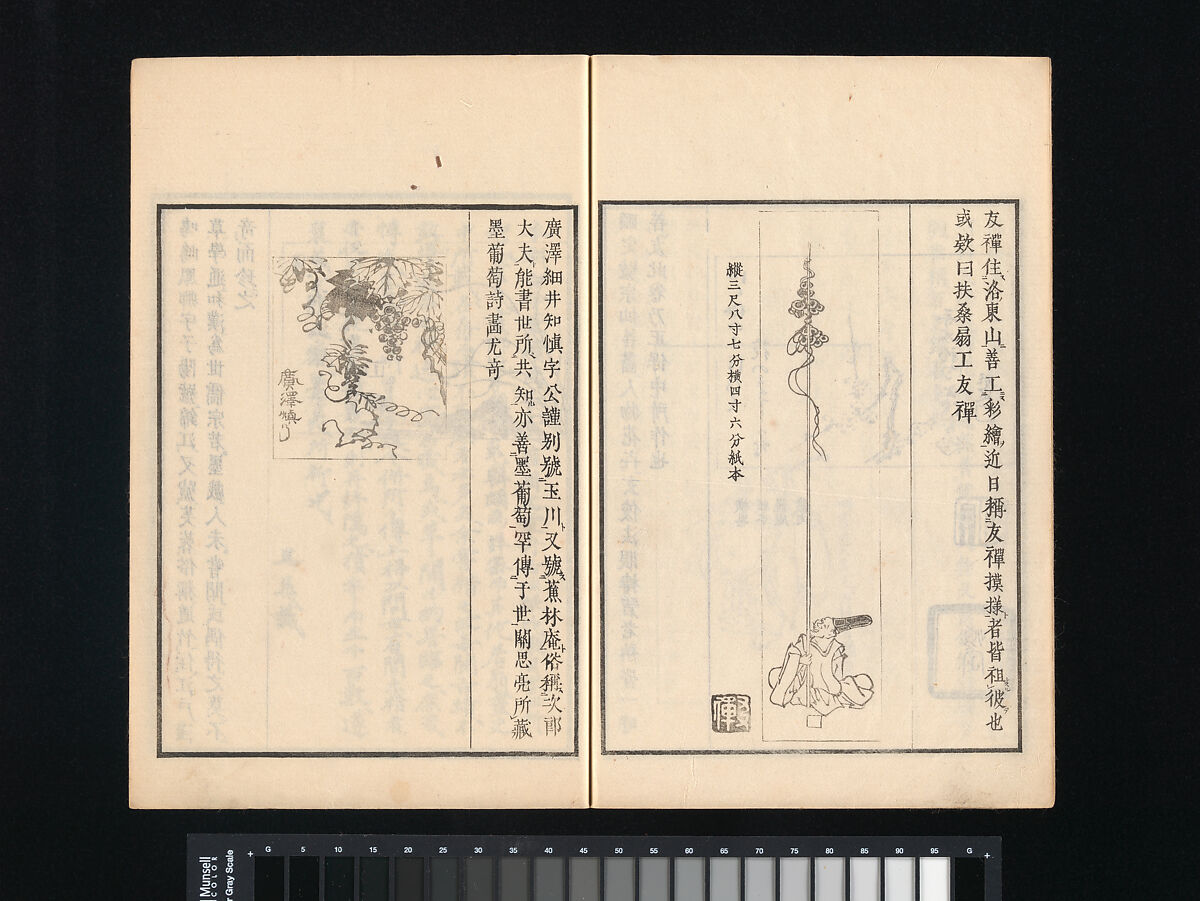 友禪住洛東山善工彩繪近日稱友禪摸様者皆祖彼也
或欵曰扶桑扇工友禪
縱三尺八寸七分橫四寸六分紙本
廣澤細井知愼字公謹别號玉川又號蕉林庵俗稱次郎
大夫能書世所共知亦善墨葡萄罕傳于世關思亮所藏
墨葡萄詩畵尤竒
廣澤愼
Munsell
COLOR
r Gray Scale
G 5 10 15 20 25 30 35 40 45 50 55 60 65 70 75 80 85 90 95 G